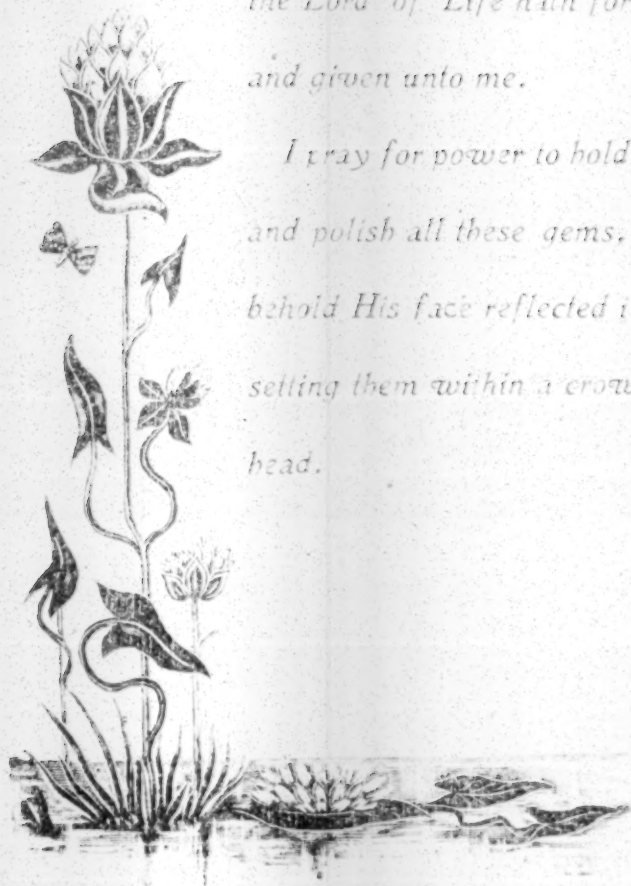 the Lord of Life hath for
and given unto me.
I pray for power to hold
and polish all these gems,
behold His face reflected i
setting them within a crow
head.